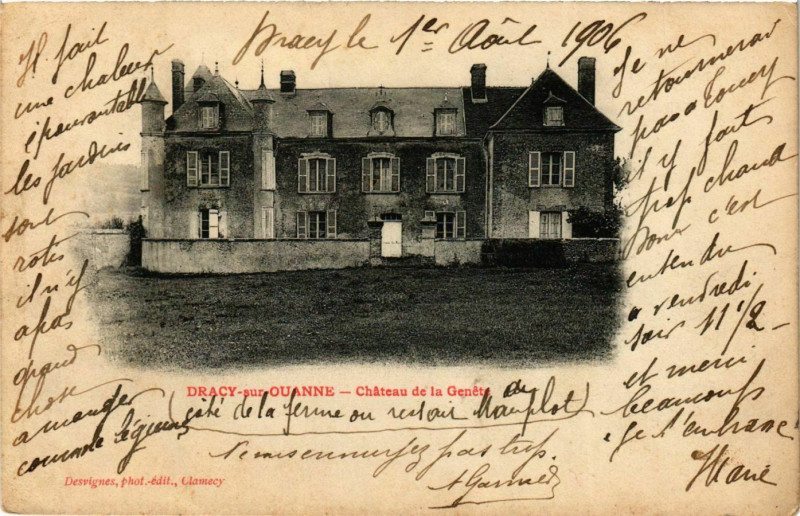 Dracy le 1er Août 1906
Il fait
une chaleur
épouvantable
les jardins
sont
rotis
il n'y
a pas
grand
chose
a manger
comme légumes
Je ne
retournerai
pas a Toucy
il y fait
trop chaud
Donc c'est
entendu
a vendredi
soir 11 1/2
et merci
beaucoup
Je t'embrasse
Marie
DRACY-sur-OUANNE — Château de la Genête
(côté de la ferme ou restait
Ne m'ennuyez pas trop.
Desvignes, phot.-édit., Clamecy